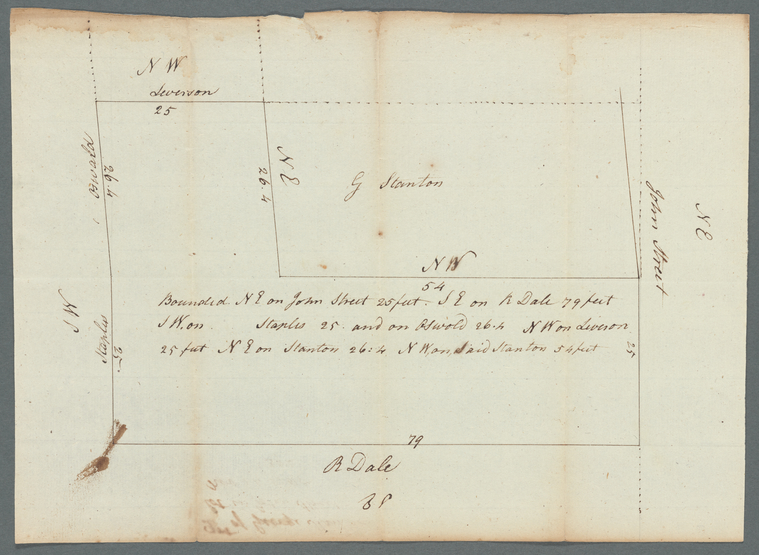 N W
Leverson
25
Oswald
26.4
26.4
N E
G Stanton
John Street
N E
N W
54
Bounded N E on John Street 25 feet. S E on R Dale 79 feet
S W. on Staples 25. and on Oswold 26.4 N W on Liverson
25 feet N E on Stanton 26:4 N W on said Stanton 54 feet
S W
Staples
25.
25
79
R Dale
S E